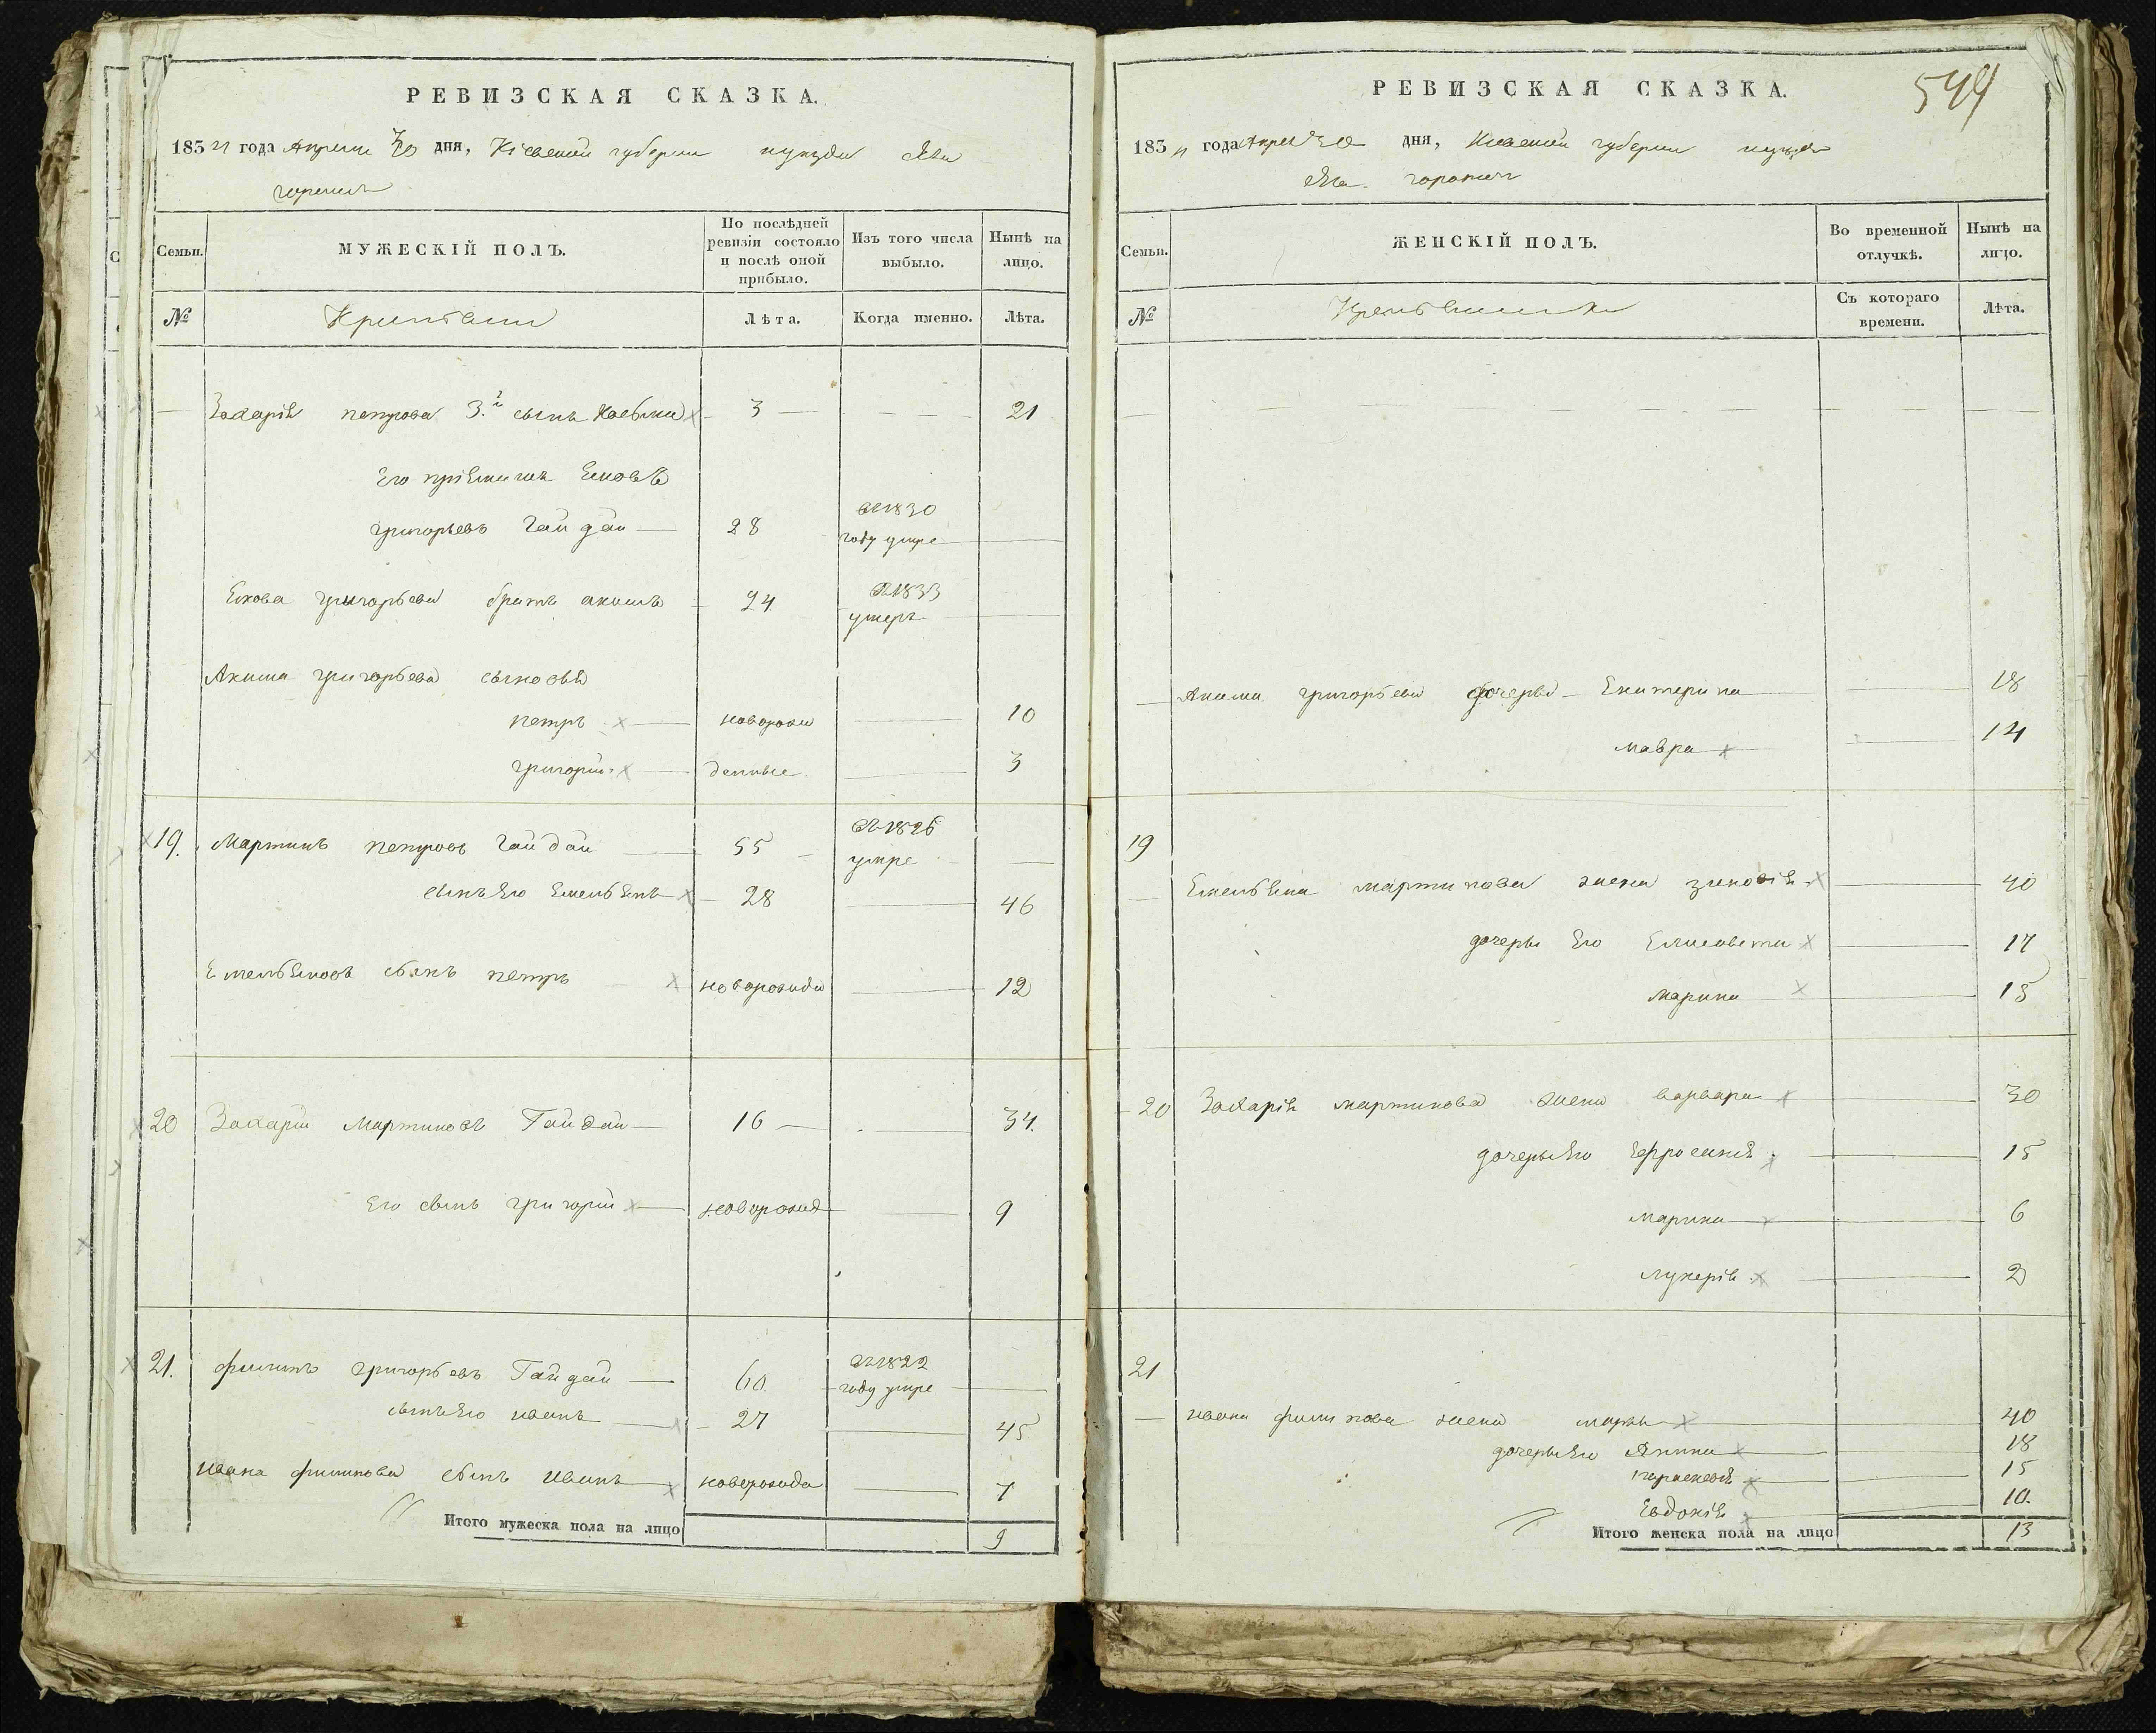 РЕВИЗСКАЯ СКАЗКА.
1834 года Апреля 30 дня, Кіевской губерніи
Семьи.
МУЖЕСКІЙ ПОЛЪ.
По послѣдней ревизіи состояло и послѣ оной прибыло.
Изъ того числа выбыло.
Нынѣ на лицо.
№
Лѣта.
Когда именно.
Лѣта.
Захарія петрова 3.й сынъ 3 21
Его пріемишъ
григорьевъ Гайдай 28 въ 1830 году умре
григорьева братъ акимъ 24 въ 1833 умеръ
Акима григорьева сыновья
петръ новорож 10
григорій денные 3
19. Мартинъ петровъ Гайдай 55 въ 1826 умре
сынъ Его Емельянъ 28 46
Емельяновъ сынъ петръ новорожде 12
20 Захарій Мартиновъ Гайдай 16 34.
Его сынъ григорій новорожд 9
21. филипъ григорьевъ Гайдай 60 въ 1822 году умре
сынъ Его иванъ 27 45
ивана филипова сынъ иванъ новорожде 7
Итого мужеска пола на лицо 9
РЕВИЗСКАЯ СКАЗКА.
544
1834 года Апреля 30 дня, Киевской губернии
Семьи.
ЖЕНСКІЙ ПОЛЪ.
Во временной отлучкѣ.
Нынѣ на лицо.
№
Съ котораго времени.
Лѣта.
Акима григорьева дочеры Екатерина 18
мавра 14
19
Емельяна мартинова жена зиновія 40
дочеры Его Елисавета 17
марина 15
20 Захарія мартинова жена варвара 30
дочеры Его Ефросинія 15
марина 6
лукерія 2
21
ивана филипова жена марья 40
дочеры Его Анна 18
параскевія 15
Евдокія 10.
Итого женска пола на лицо 13